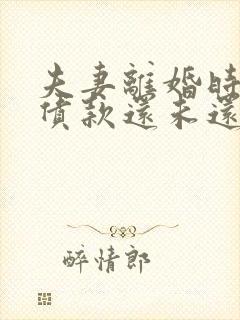 夫妻離婚時
債款還未還
醉情郎